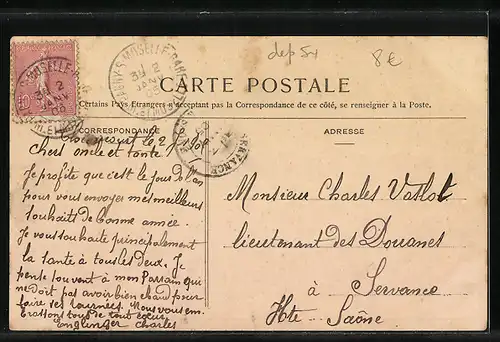 dep 54
8€
CARTE POSTALE
Certains Pays Etrangers n'acceptant pas la Correspondance de ce côté, se renseigner à la Poste.
CORRESPONDANCE
ADRESSE
le 2
Chers oncle et tante
Je profite que c'est le jour de l'an
pour vous envoyer mes meilleurs
souhaits de bonne année.
Je vous souhaite principalement
la santé à tous les deux. Je
pense souvent à mon Parrain qui
ne doit pas avoir bien chaud pour
faire ses tournées. Nous vous em
brassons tous de tout cœur
Englinger Charles
Monsieur Charles
lieutenant des Douanes
à Servance
Hte Saône